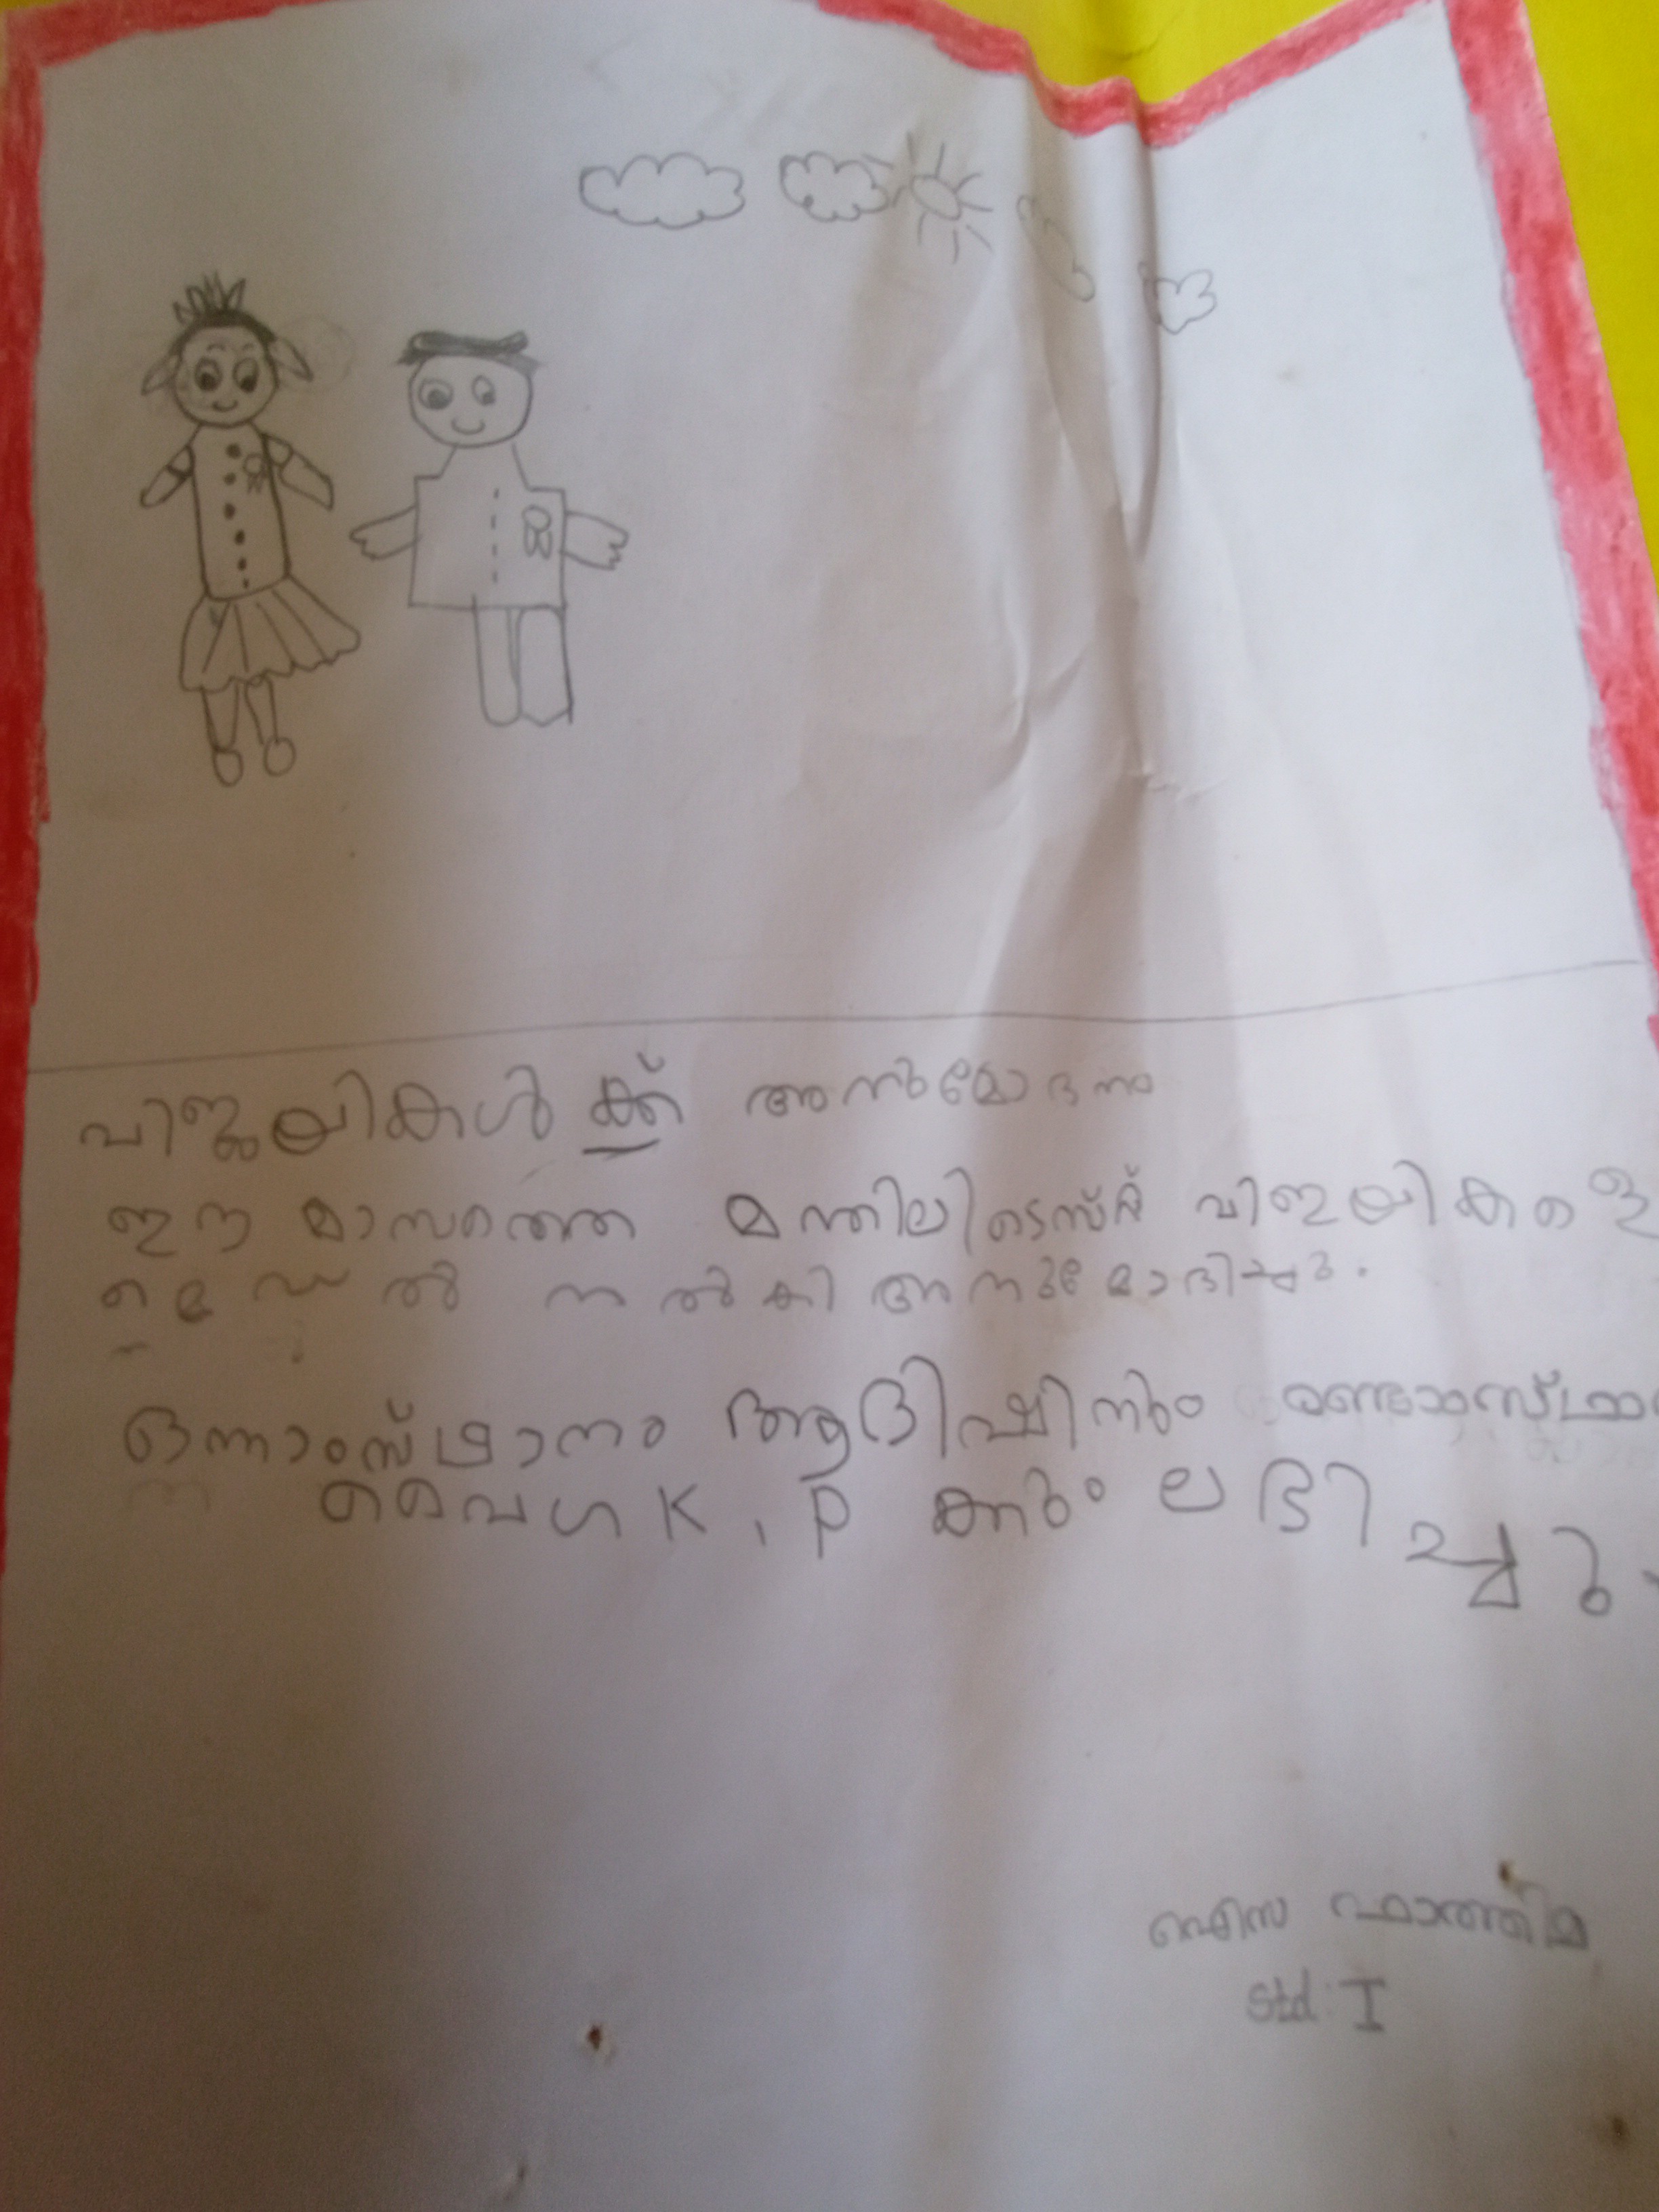 വിജയികൾക്ക് അനുമോദനം
ഈ മാസത്തെ മന്തിലി ടെസ്റ്റ് വിജയികളെ
മെഡൽ നൽകി അനുമോദിച്ചു.
ഒന്നാംസ്ഥാനം ആദിഷിനും രണ്ടാംസ്ഥാ
വൈഗ K.P ക്കും ലഭിച്ചു.
ഐസ ഫാത്തിമ
Std: I